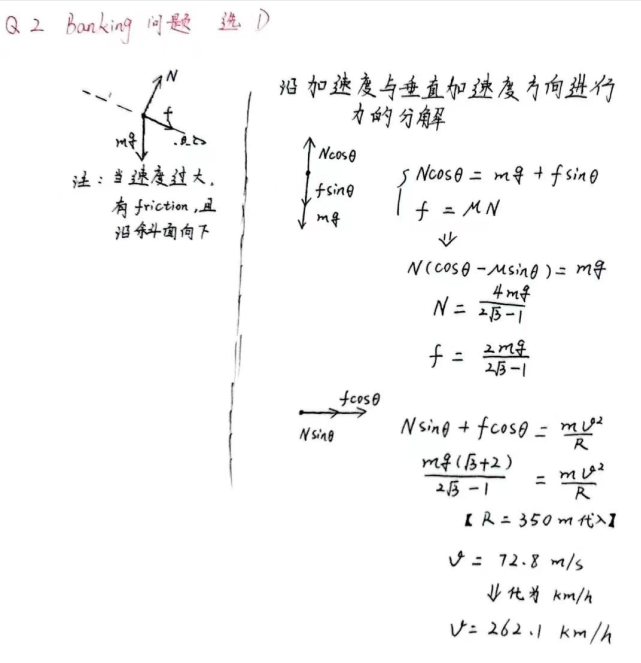 Q2 Banking 问题 选 D
N
f
mg
注:当速度过大,
有 friction,且
沿斜面向下
沿加速度与垂直加速度方向进行
力的分解
Ncosθ
fsinθ
mg
{ Ncosθ = mg + fsinθ
f = μN
⇓
N(cosθ - μsinθ) = mg
N = 4mg / (2√3-1)
f = 2mg / (2√3-1)
fcosθ
Nsinθ
Nsinθ + fcosθ = mv² / R
mg(√3+2) / (2√3-1) = mv² / R
【R = 350m代入】
v = 72.8 m/s
⇓ 化为 km/h
v = 262.1 km/h